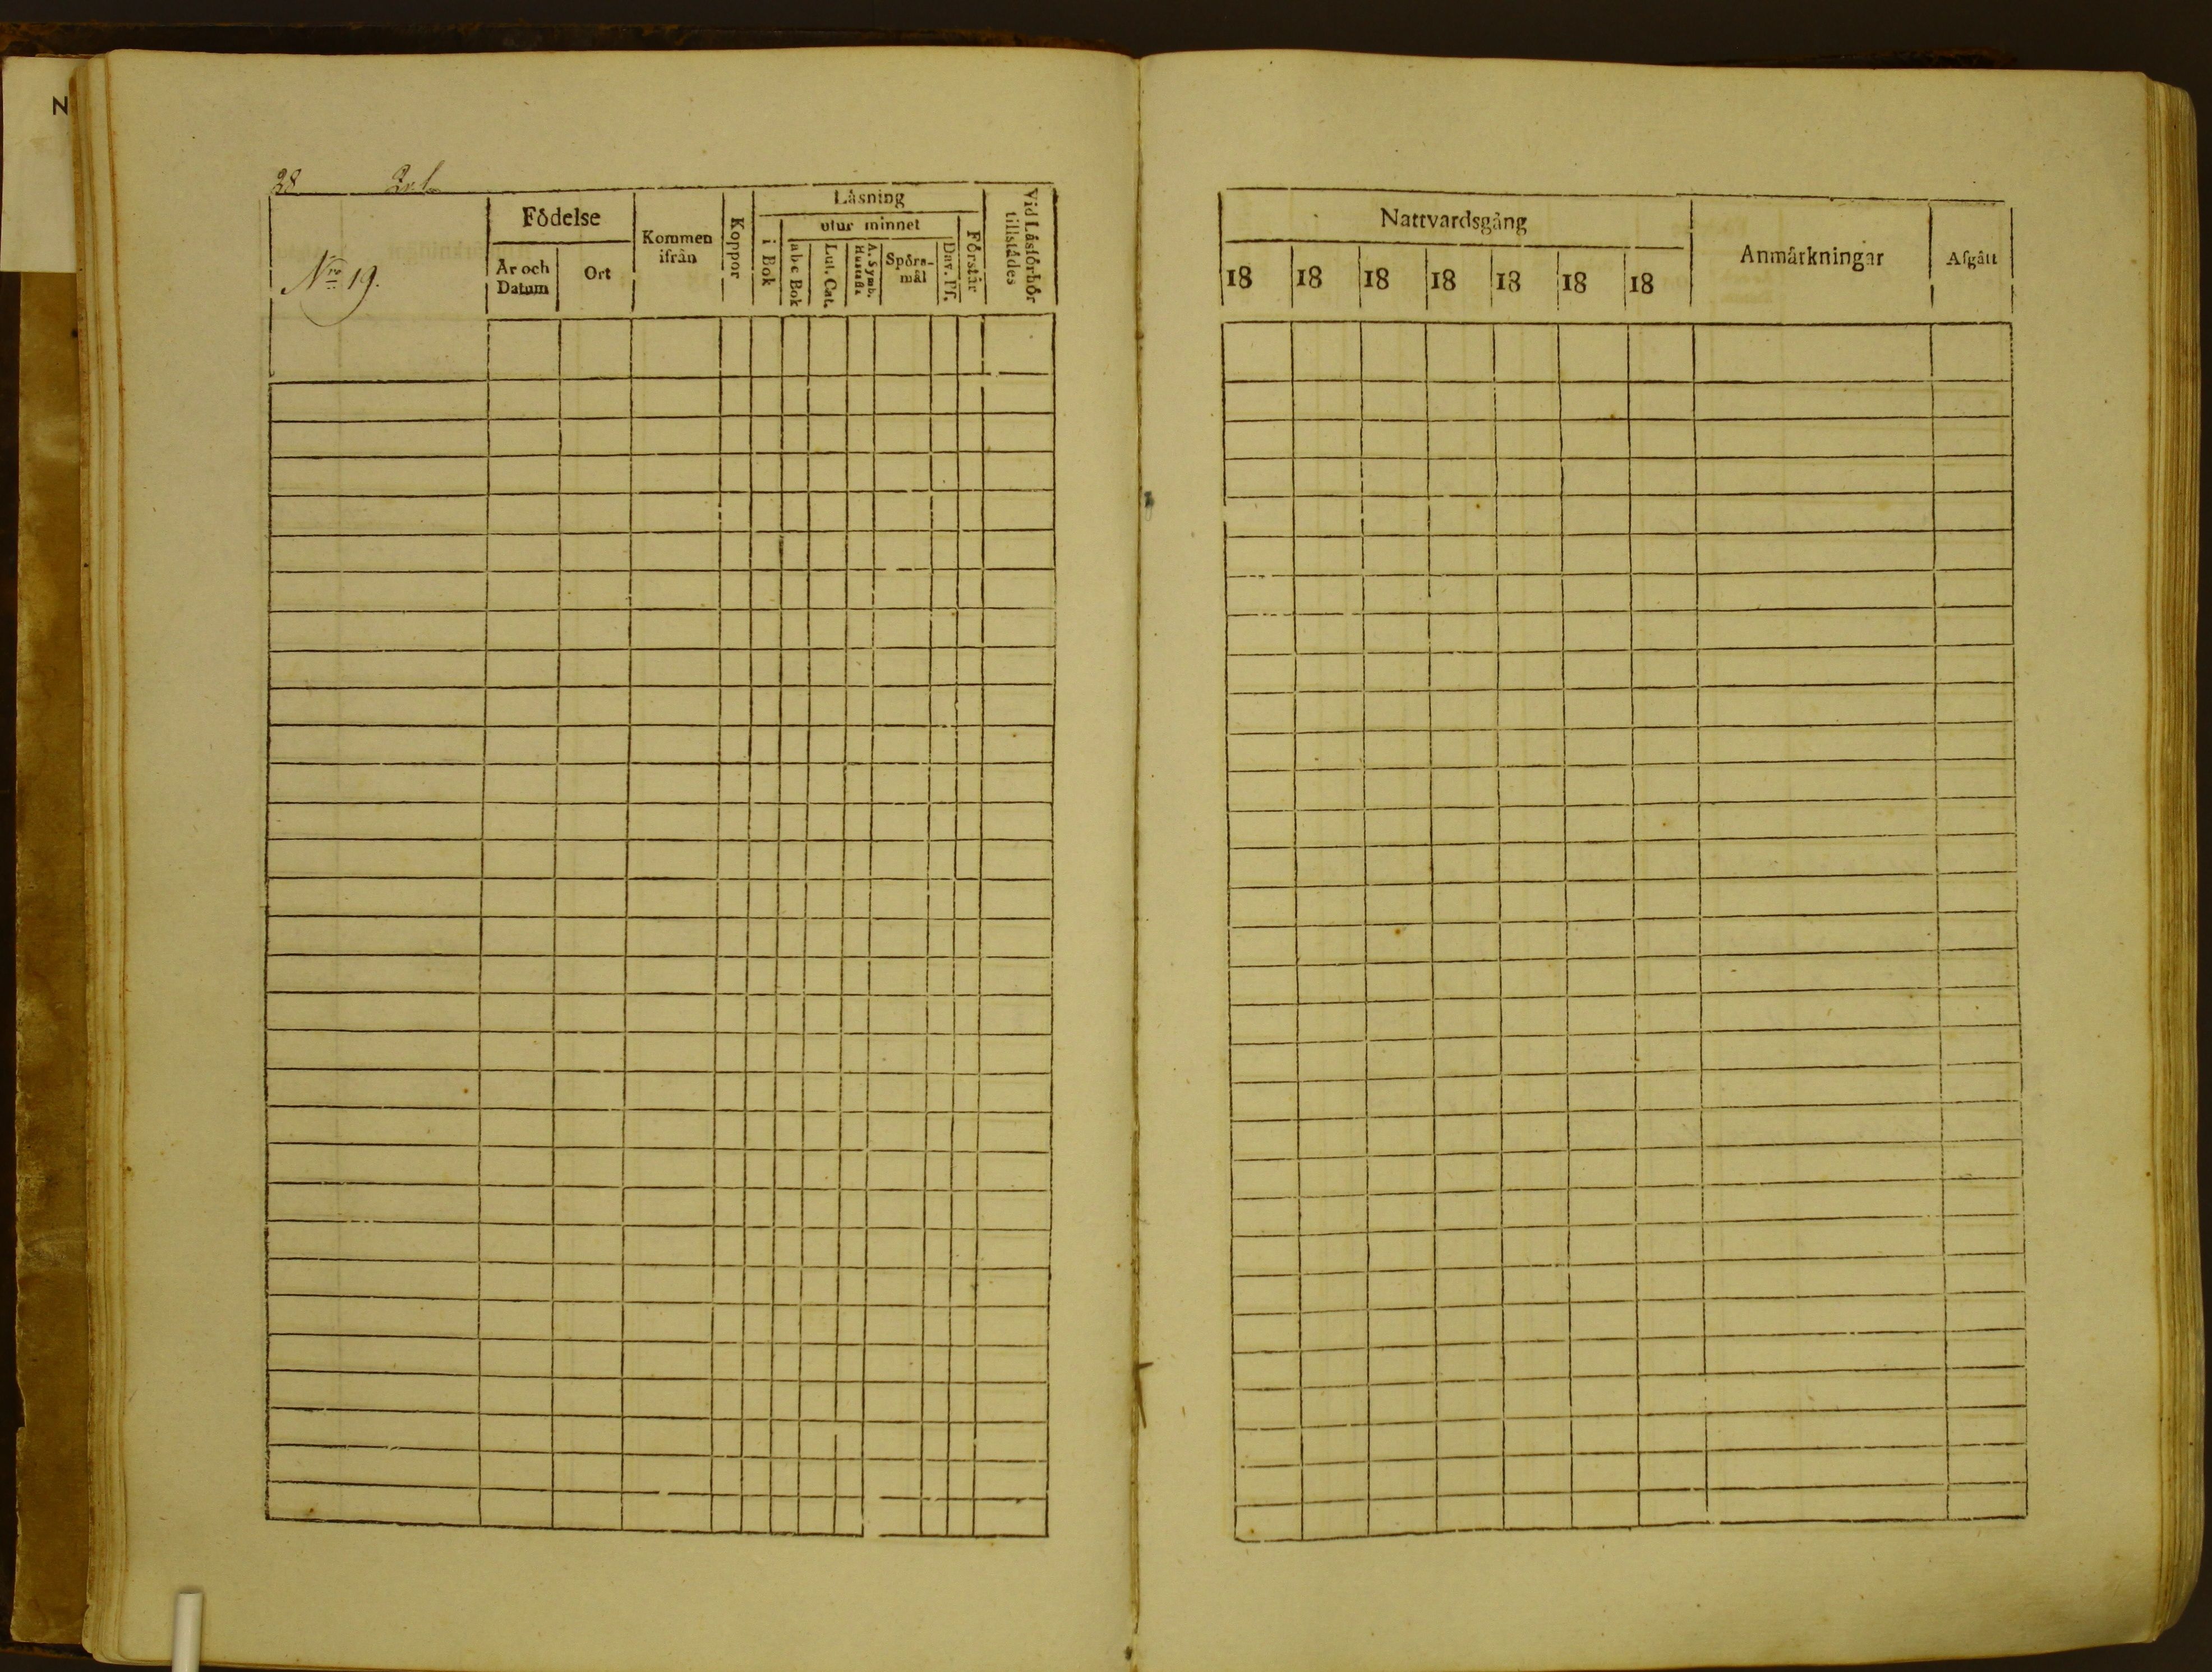 N
28
Nro 19.
Födelse
År och Datum
Ort
Kommen ifrån
Koppor
Läsning
i Bok
utur minnet
abc Bok
Lut. Cat.
A. Symb. Hustafla
Spörsmål
Dav. Ps.
Förstår
Vid Läsförhör tillstädes
Nattvardsgång
18 18 18 18 18 18 18
Anmärkningar
Afgått